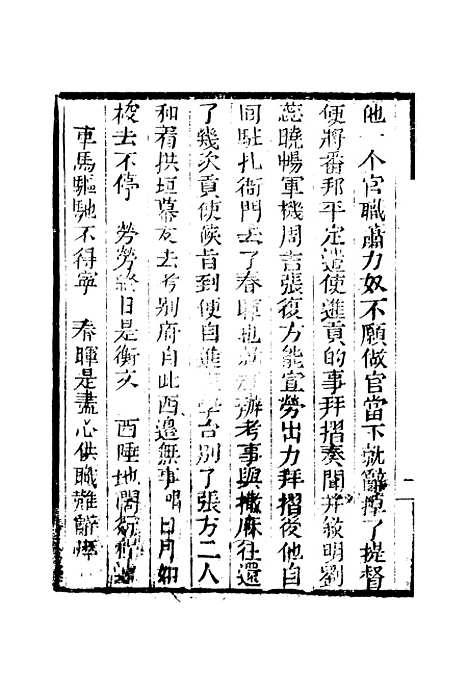 他一个官職蕭力奴不願做官當下就辭掉了提督
便將畨邦平定遣使進貢的事拜摺奏聞并敘明劉
蕊曉暢軍機周吉張復方能宣勞出力拜摺後他自
囘駐扎衙門去了春暉也 辦考事與撒麻往還
了幾次貢使候旨到便自進 學台別了張方二人
和着拱垣幕友去考別府自此西邊無事唱 日月如
梭去不停 勞勞終日是衡文 西陲地闊
車馬驅馳不得寧 春暉是盡心供職難辭